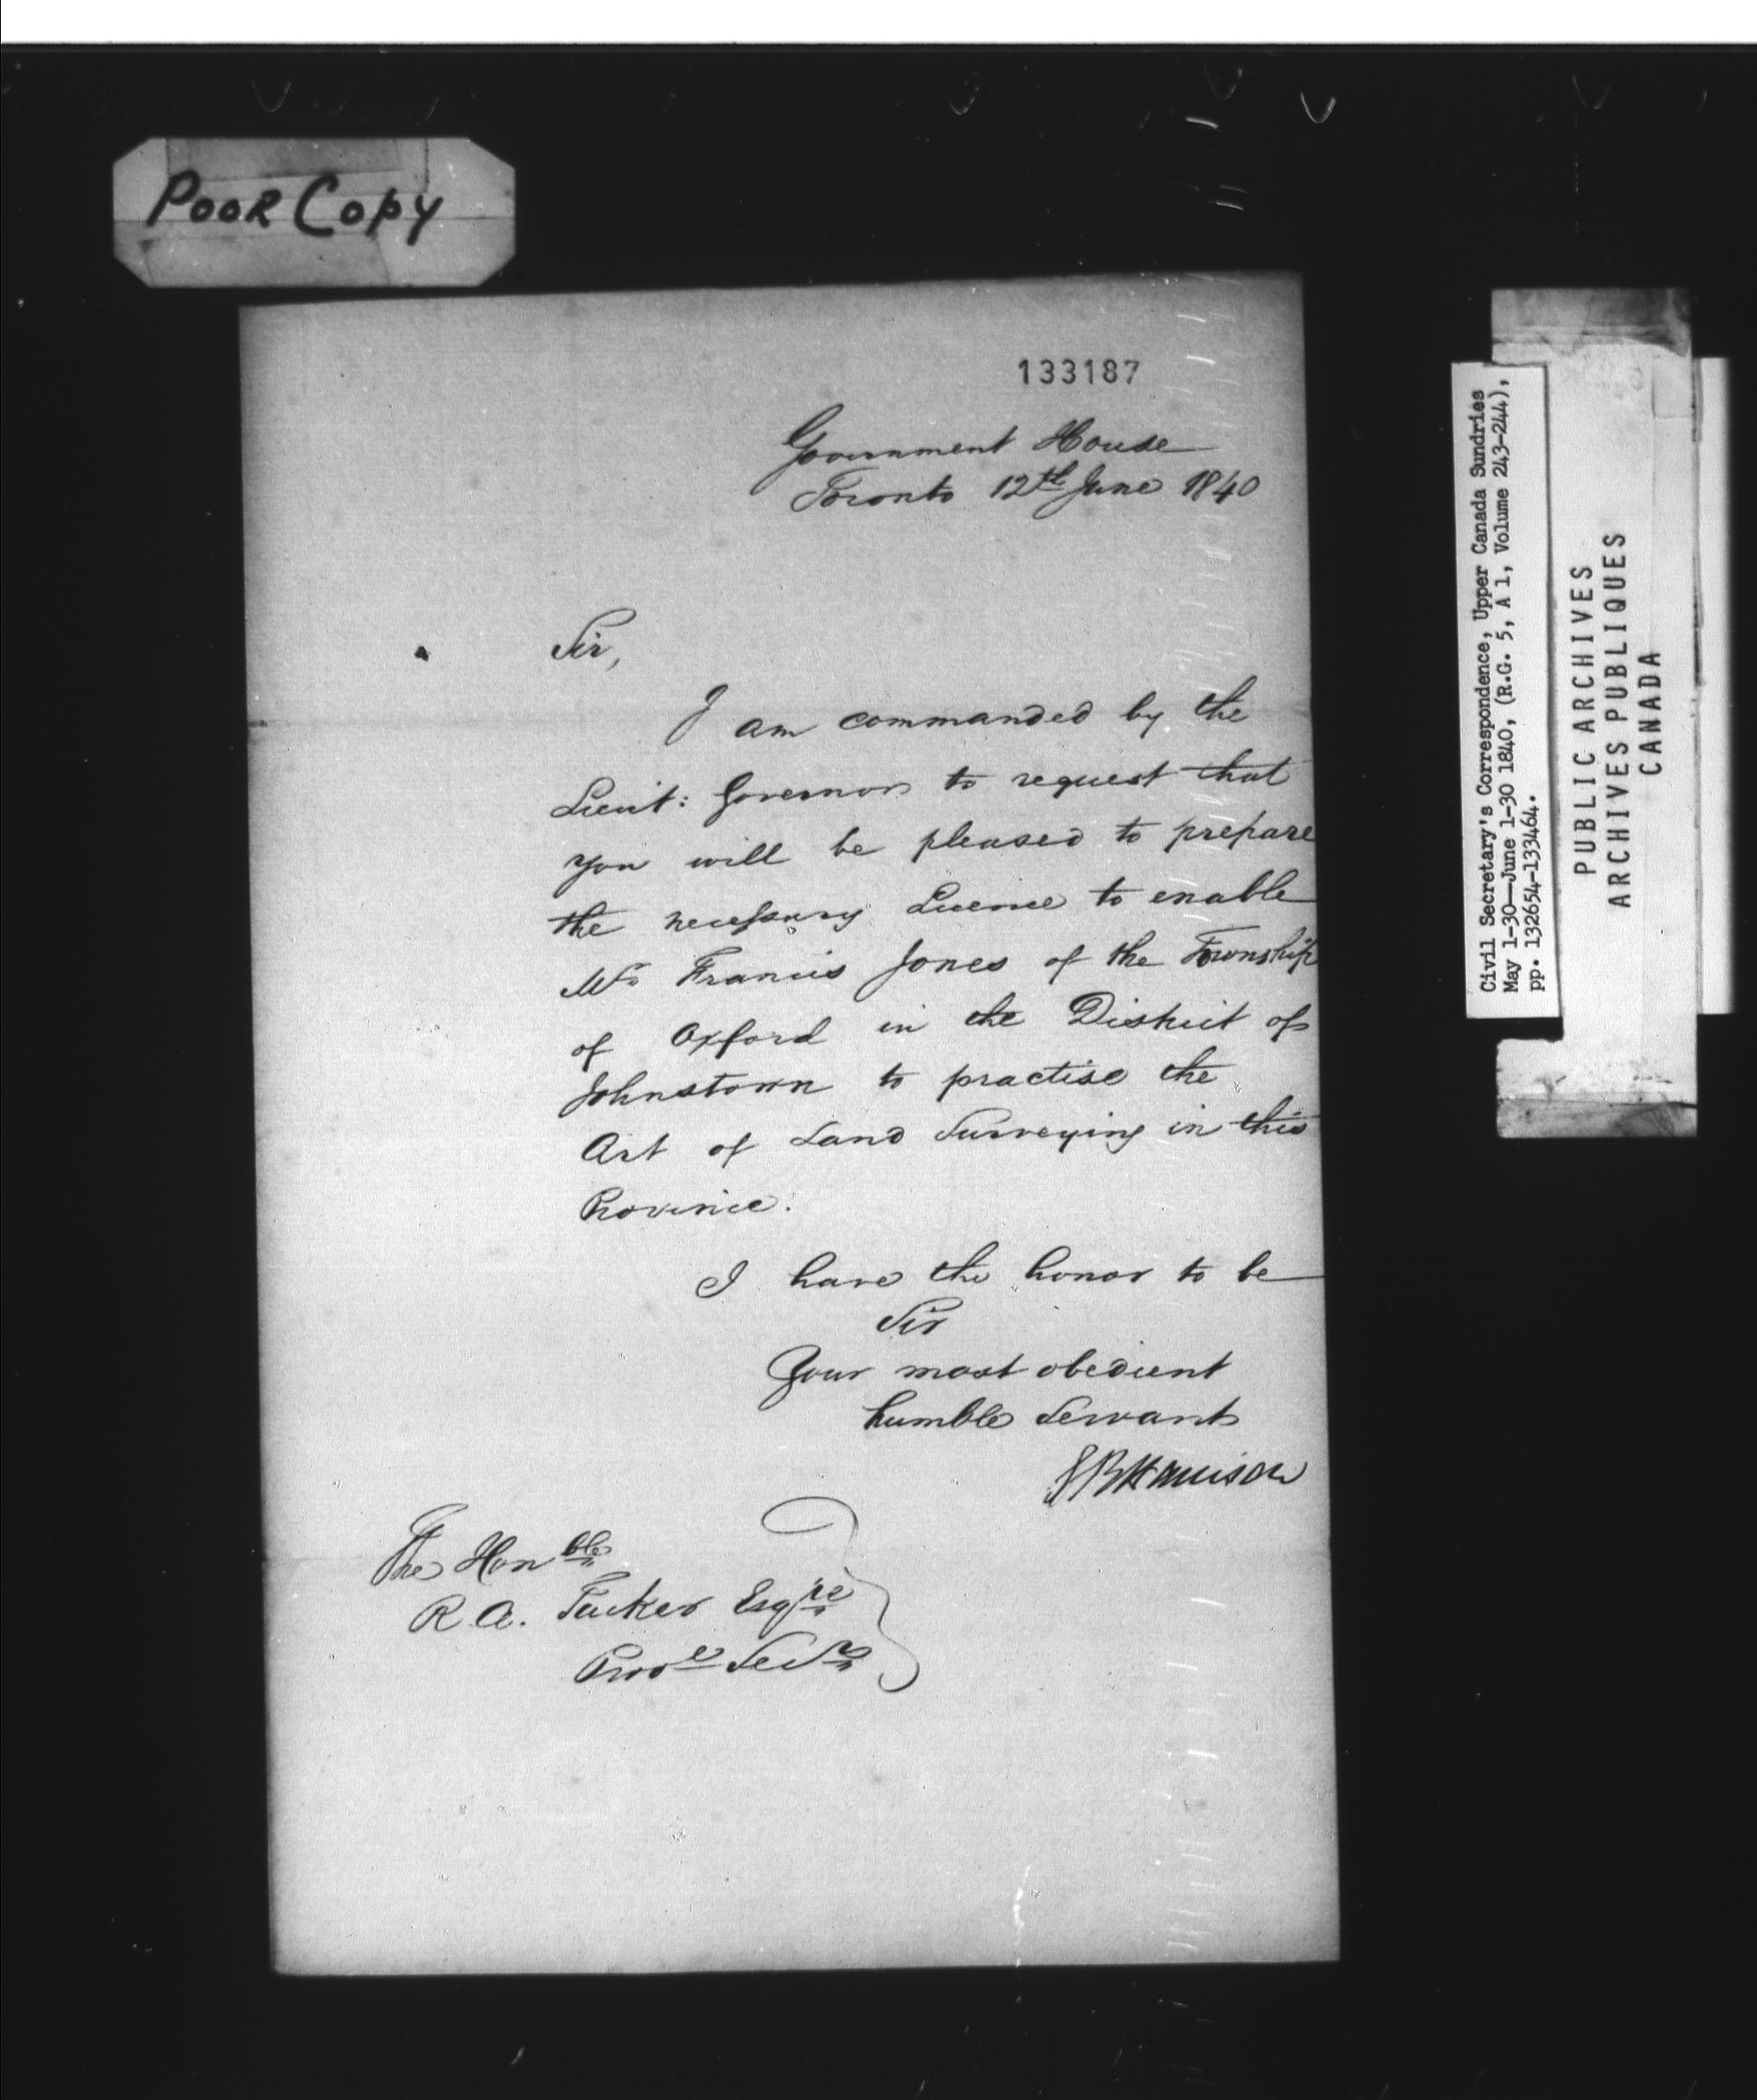 POOR COPY
133187
Government House
Toronto 12th June 1840
Sir,
I am commanded by the
Lieut: Governor to request that
you will be pleased to prepare
the necessary Licence to enable
Mr Francis Jones of the Township
of Oxford in the District of
Johnstown to practise the
Art of Land Surveying in this
Province.
I have the honor to be
Sir
Your most obedient
humble Servant
S B Harrison
The Honble
R. A. Tucker Esqre
Prove Secry
Civil Secretary's Correspondence, Upper Canada Sundries
May 1-30—June 1-30 1840, (R.G. 5, A 1, Volume 243-244),
pp. 132654-133464.
PUBLIC ARCHIVES
ARCHIVES PUBLIQUES
CANADA